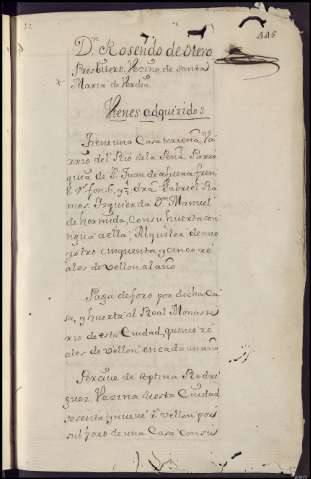 12
446
Dn. Rosendo de Otero
Presbitero, Vecino de Santa
Maria de
Vienes adquiridos
Tiene una Casa terrena
del Rio de la Peña Parro
quia de Sn. Juan de afuera, fren
te Gabriel Ra
mos, Izquierda Dn. Manuel
de hermida, Con su huerta con
tigua a ella Alquiler de nue
cinquenta y cinco re
ales de vellon al año
Paga de foro por dicha Ca
sa, y huerta al Real Monaste
rio de esta Ciudad, quince re
ales de Vellon en cada un año
Percive de Rodri
guez Vecina de esta Ciudad
sesenta y nueve rs. vellon por
subforo de una Casa con su